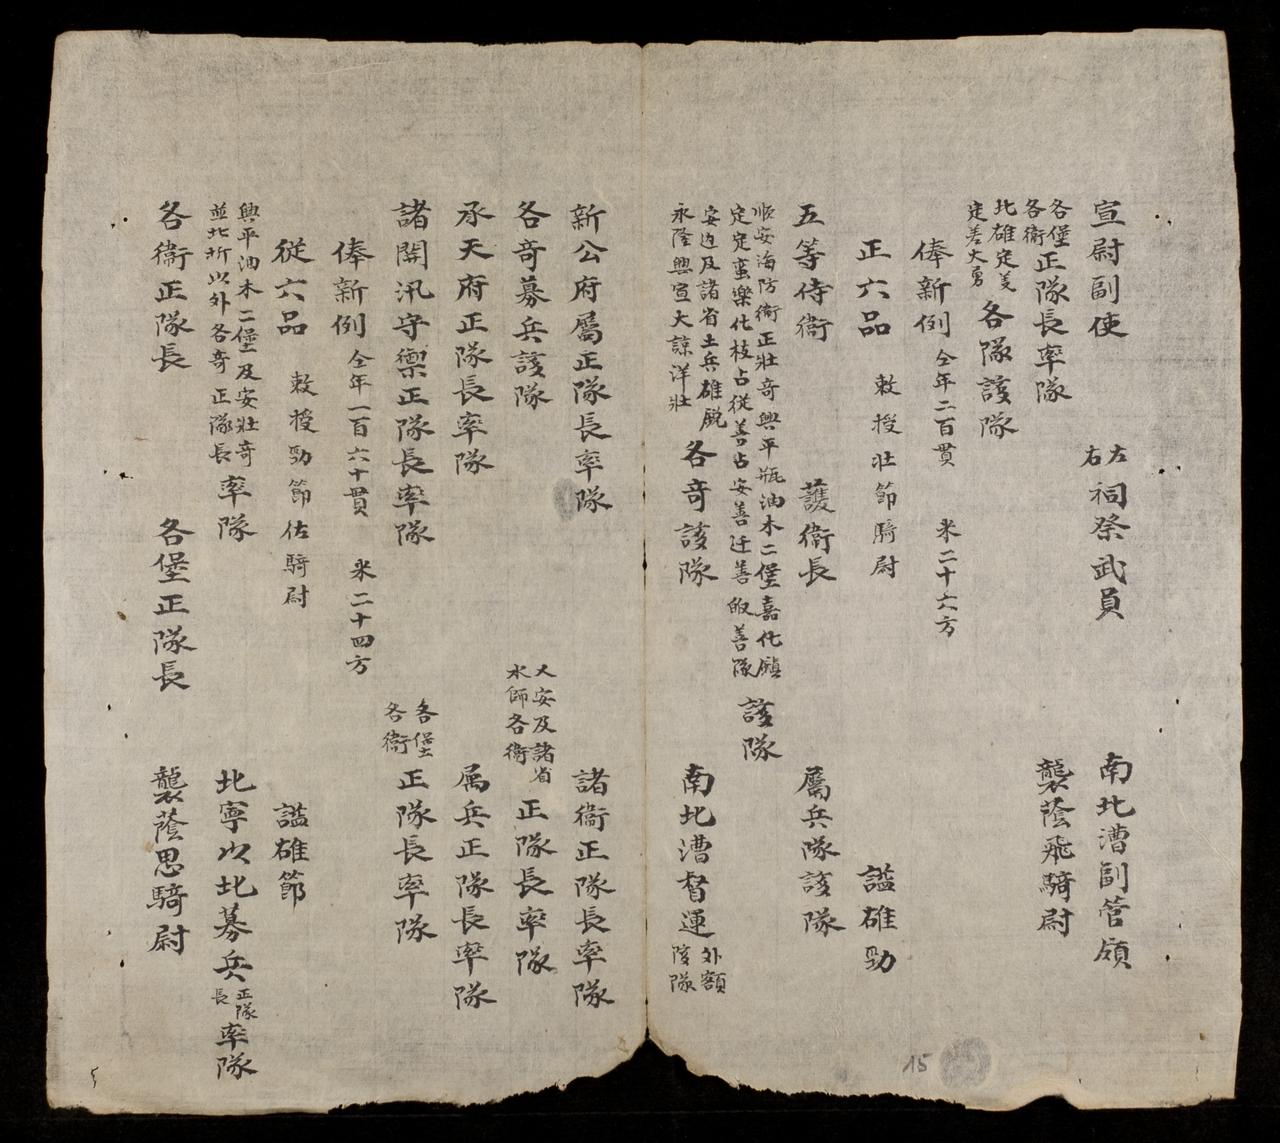 宣尉副使 左右祠祭武員 南北漕副管領
各堡各衛正隊長率隊 襲蔭飛騎尉
北雄定美定善大勇各隊該隊
俸新例 全年二百貫 米二十六方
正六品 敕授壯節騎尉 謚雄勁
五等侍衛 護衛長 屬兵隊該隊
順安海防衛正壯奇興平瓶油木二堡嘉化鎮
定定蛮樂化枝占從善占安善迁善皈善隊 該隊
安边及諸省土兵雄
永隆興宣大諒洋壯 各奇該隊 南北漕督運外額隊
新公府屬正隊長率隊 諸衛正隊長率隊
各奇募兵該隊 大安及諸省水師各衛正隊長率隊
承天府正隊長率隊 属兵正隊長率隊
諸關汛守禦正隊長率隊 各堡各衛正隊長率隊
俸新例 全年一百六十貫 米二十四方
從六品 敕授勁節佐騎尉 謚雄節
興平油木二堡及安壯奇
並北圻以外各奇正隊長率隊 北寧以北募兵正隊長率隊
各衛正隊長 各堡正隊長 襲蔭恩騎尉
15